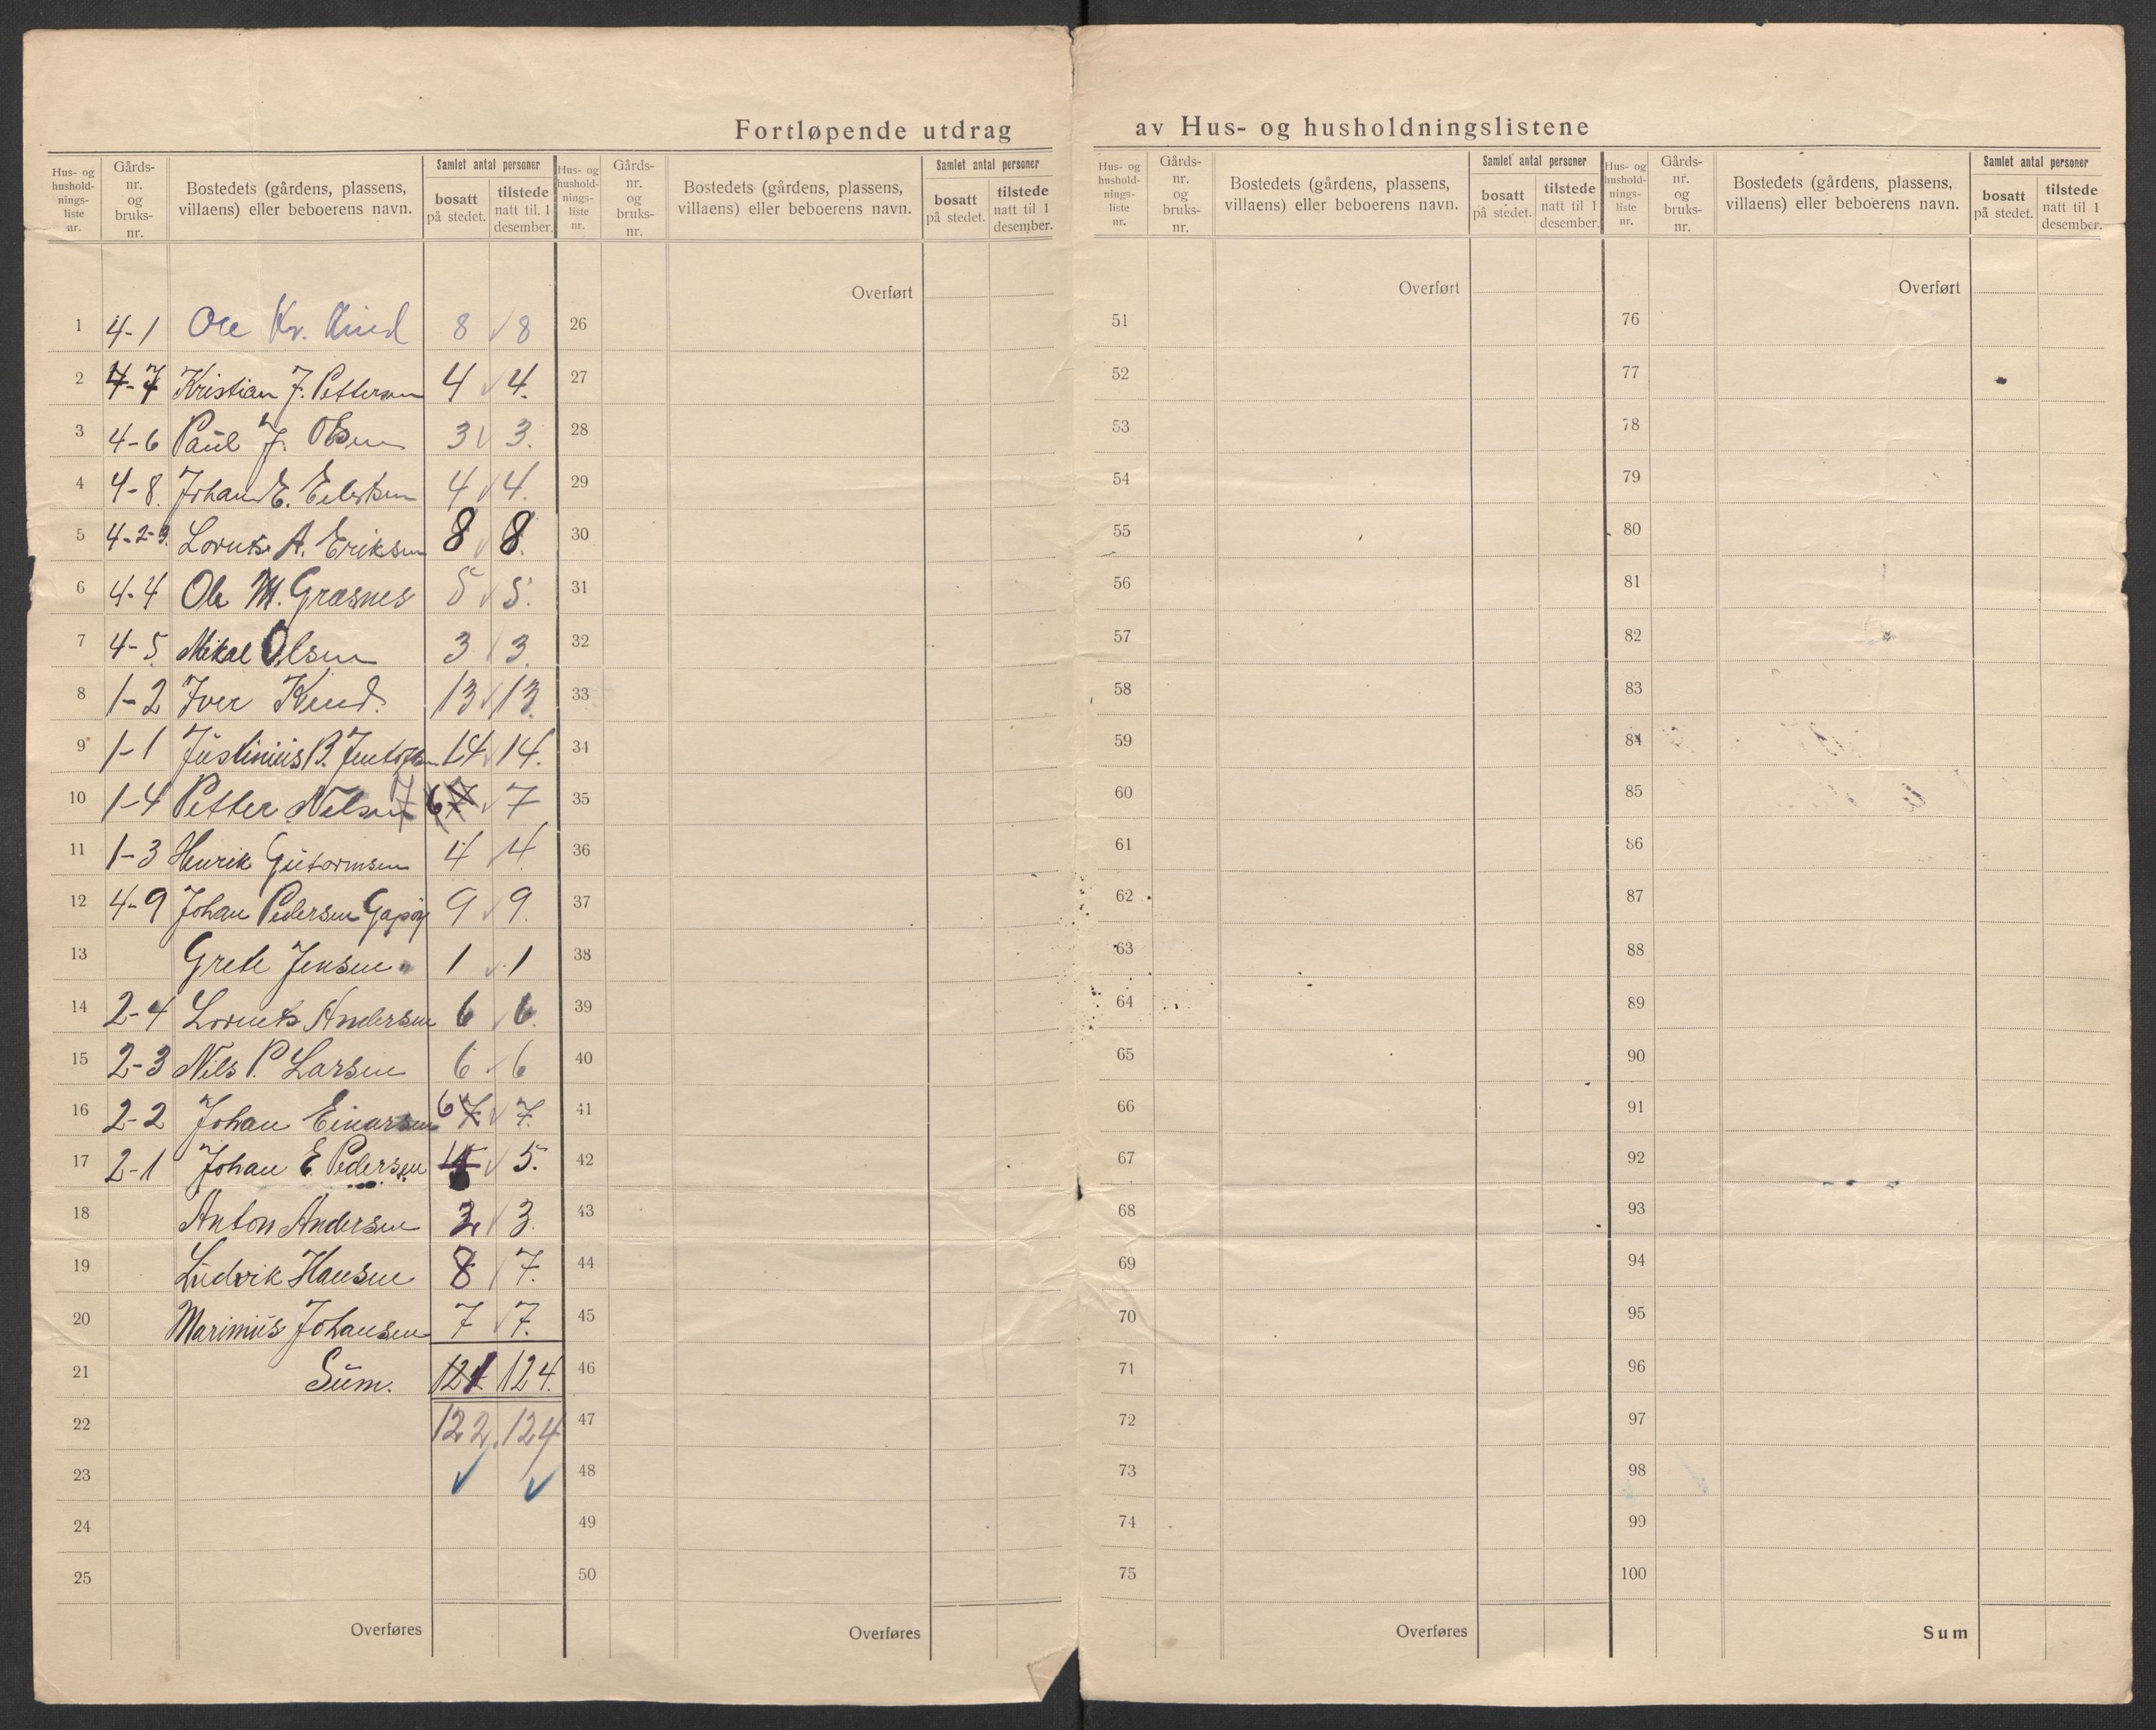 Fortløpende utdrag av Hus- og husholdningslistene
Hus- og hushold- nings- liste nr. | Gårds- nr. og bruks- nr. | Bostedets (gårdens, plassens, villaens) eller beboerens navn. | Samlet antal personer | bosatt på stedet. | tilstede natt til 1 desember.
1 4-1 Ole Kr. Kind 8 8
2 4-7 Kristian J. Pettersen 4 4.
3 4-6 Paul J. Olsen 3 3.
4 4-8. Johan E. Eilertsen 4 4.
5 4-2-3. Lornts A. Eriksen 8 8.
6 4-4 Ole M. Græsnes 5 5.
7 4-5. Mikal Olsen 3 3.
8 1-2 Iver Kind. 13 13.
9 1-1 Justinius B. Jentofsen 14 14.
10 1-4 Petter Nilsen 6 7
11 1-3 Henrik Gutormsen 4 4
12 4-9 Johan Pedersen Gapøy 9 9.
13 Grete Jensen 1 1
14 2-4 Lornts Andersen 6 6.
15 2-3 Nils P. Larsen 6 6
16 2-2 Johan Einarsen 6 7.
17 2-1 Johan E Pedersen 5.
18 Anton Andersen 3.
19 Ludvik Hansen 8 7.
20 Marinius Johansen 7 7.
21 Sum. 121 124.
22 122. 124
23
24
25
Overføres
Hus- og hushold- nings- liste nr. | Gårds- nr. og bruks- nr. | Bostedets (gårdens, plassens, villaens) eller beboerens navn. | Samlet antal personer | bosatt på stedet. | tilstede natt til 1 desember.
Overført
26
27
28
29
30
31
32
33
34
35
36
37
38
39
40
41
42
43
44
45
46
47
48
49
50
Overføres
Hus- og hushold- nings- liste nr. | Gårds- nr. og bruks- nr. | Bostedets (gårdens, plassens, villaens) eller beboerens navn. | Samlet antal personer | bosatt på stedet. | tilstede natt til 1 desember.
Overført
51
52
53
54
55
56
57
58
59
60
61
62
63
64
65
66
67
68
69
70
71
72
73
74
75
Overføres
Hus- og hushold- nings- liste nr. | Gårds- nr. og bruks- nr. | Bostedets (gårdens, plassens, villaens) eller beboerens navn. | Samlet antal personer | bosatt på stedet. | tilstede natt til 1 desember.
Overført
76
77
78
79
80
81
82
83
84
85
86
87
88
89
90
91
92
93
94
95
96
97
98
99
100
Sum